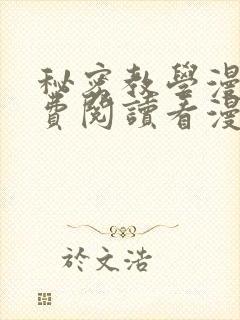 秘密教學漫
費閱讀看漫
於文浩